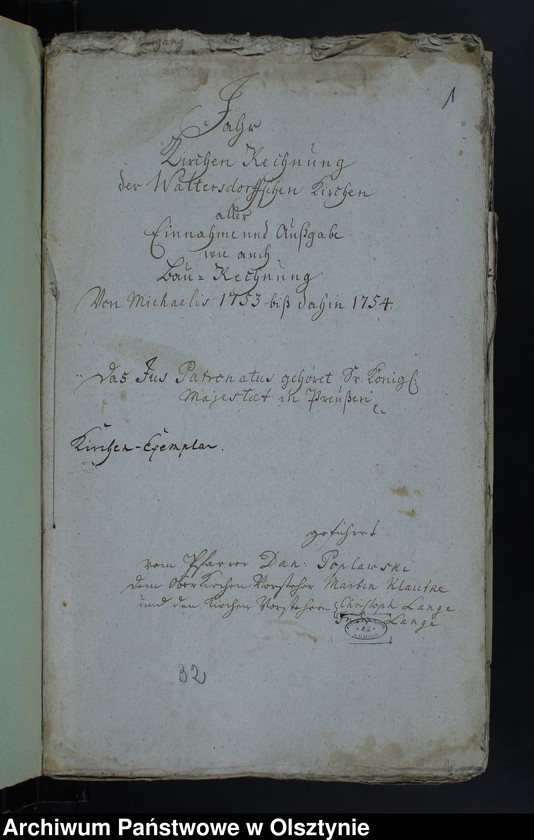 1
Jahr
Kirchen Rechnung
der Waltersdorffschen Kirchen
aller
Einnahme und Außgabe
wie auch
Bau-Rechnung
Von Michaelis 1753 biß dahin 1754
Das Jus Patronatus gehöret Sr. Königl.
Majestæt in Preußen
Kirchen-Exemplar.
geführet
vom Pfarrer Dan: Poplawski
dem Ober Kirchen Vorsteher Martin Klautke
und den Kirchen Vorstehern Christoph Lange
Lange
32
Archiwum Państwowe w Olsztynie